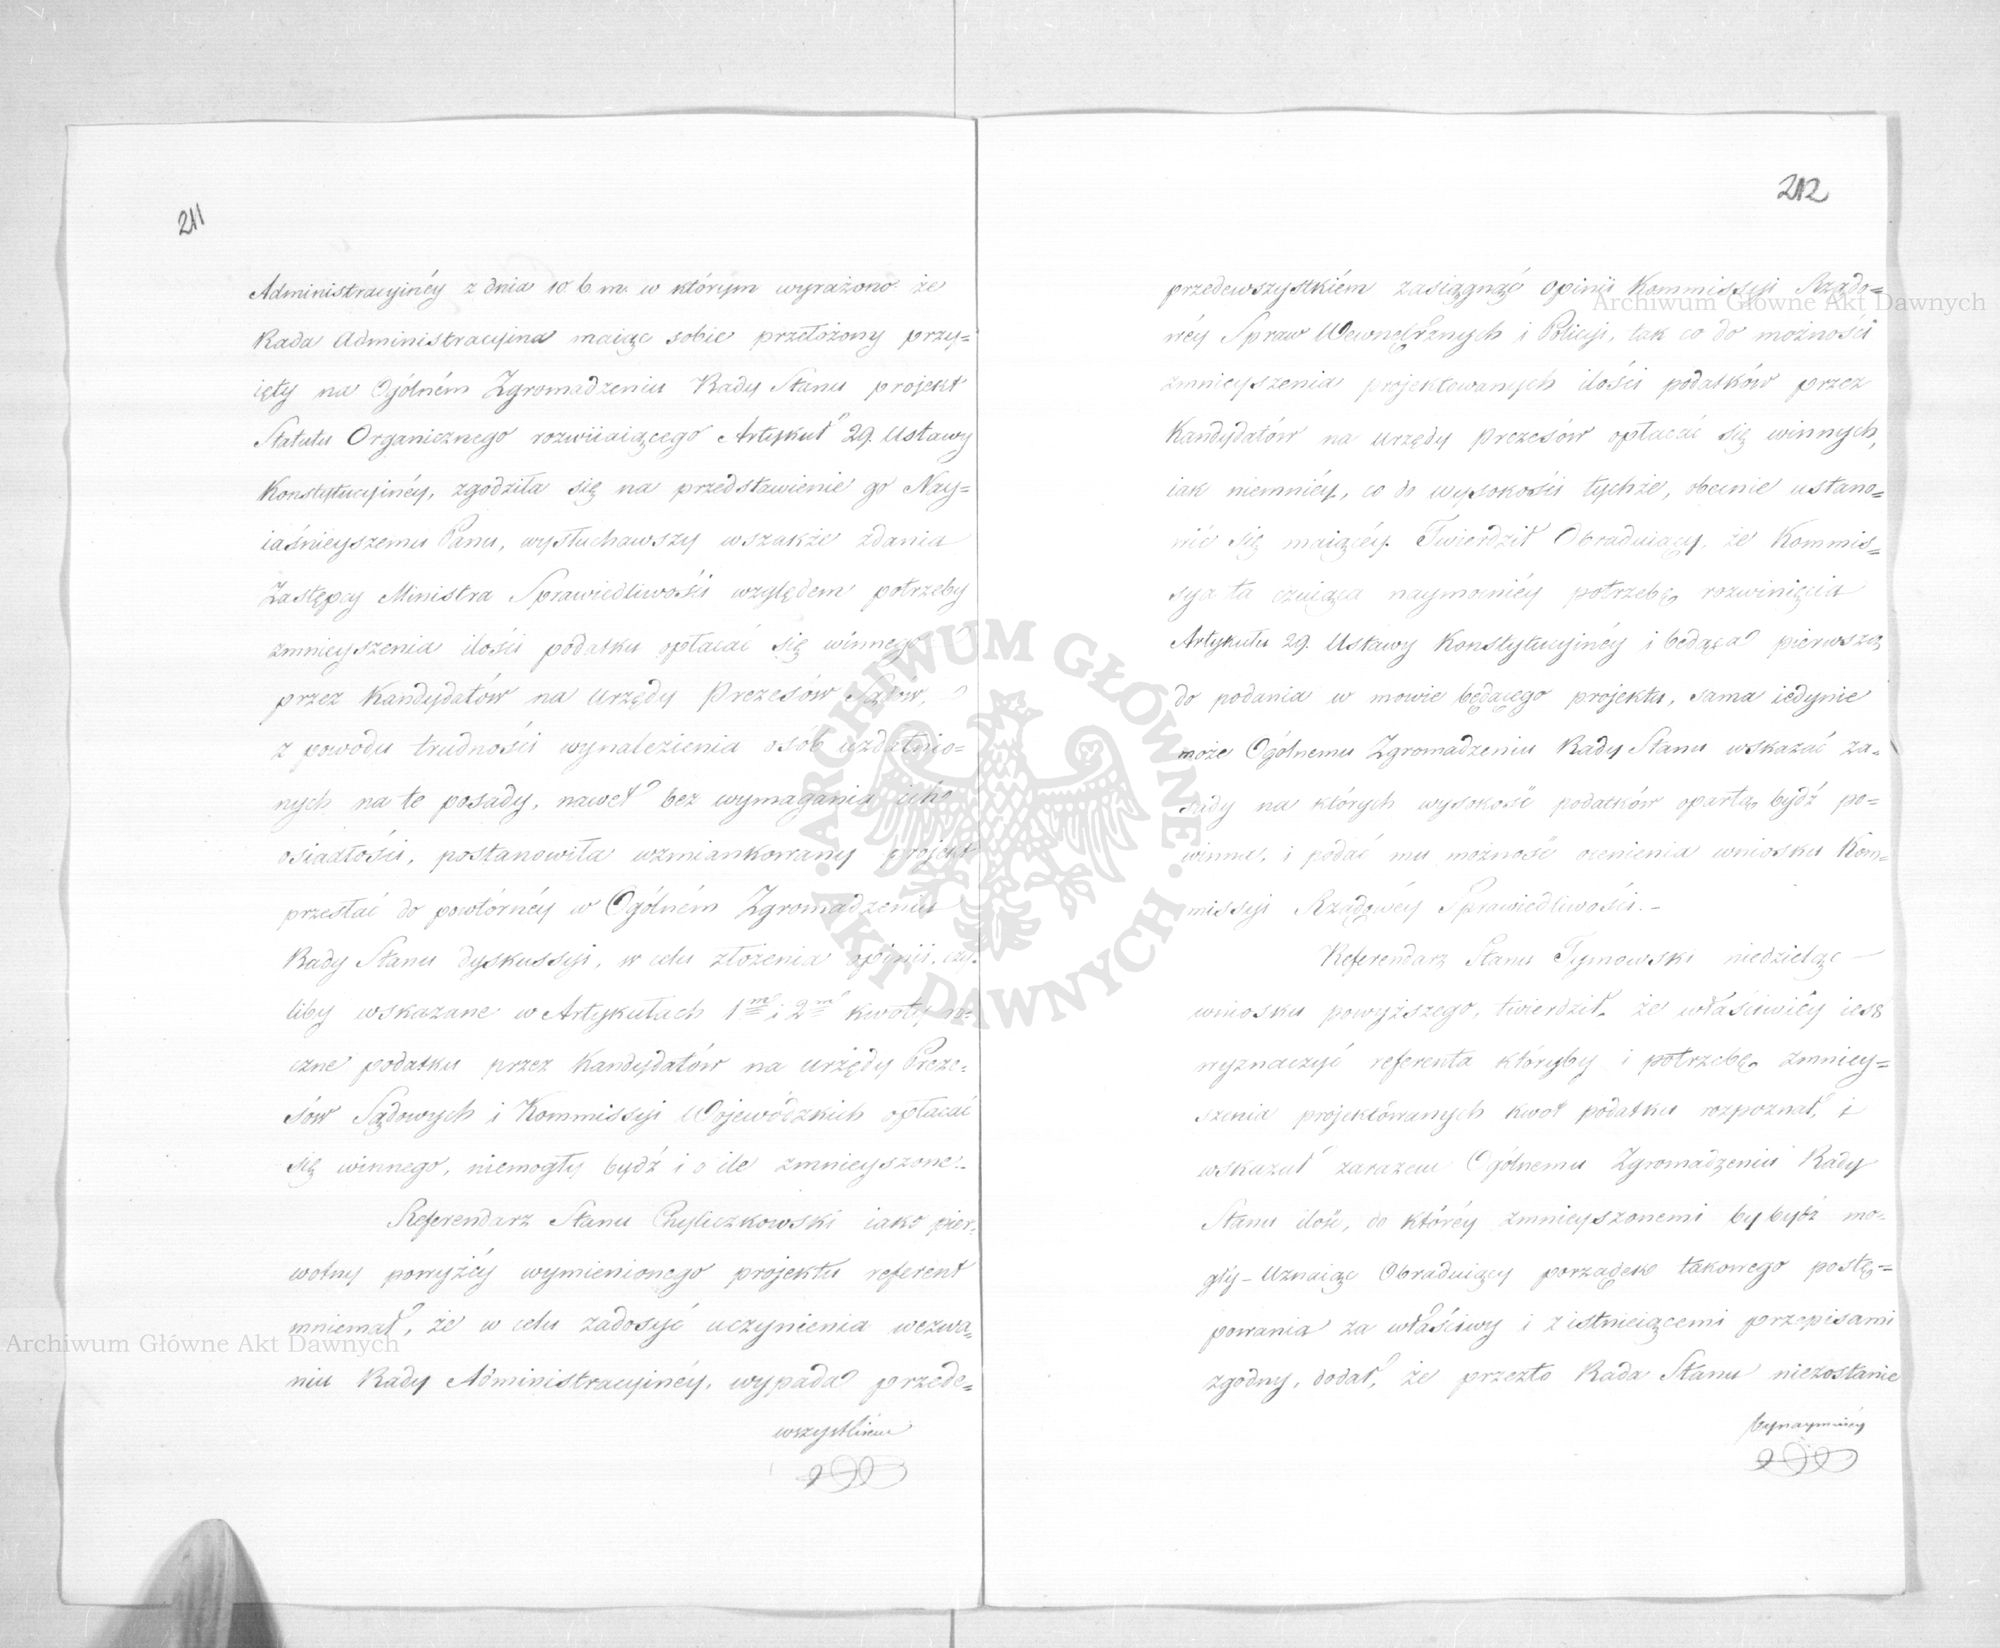 211
Administracyinéy z dnia 10. b. m. w którym wyrażono że
Rada Administracyina maiąc sobie przełożony przy=
ięty na Ogólném Zgromadzeniu Rady Stanu projekt
Statutu Organicznego rozwiiaiącego Artykuł 29. Ustawy
Konstytucyinéy, zgodziła się na przedstawienie go Nay=
iaśnieyszemu Panu, wysłuchawszy wszakże zdania
Zastępcy Ministra Sprawiedliwości względem potrzeby
zmnieyszenia ilości podatku opłacać się winnego
przez Kandydatów na Urzędy Prezesów Sądow,
z powodu trudności wynalezienia osób uzdatnio=
nych na te posady, nawet bez wymagania ich
osiadłości, postanowiła wzmiankowany projekt
przesłać do powtórnéy w Ogólném Zgromadzeniu
Rady Stanu dyskussyi, w celu złożenia opinii, czy=
liby wskazane w Artykułach 1m i 2m kwoty ro=
czne podatku przez Kandydatów na urzędy Preze=
sów Sądowych i Kommissyi Wojewódzkich opłacać
się winnego, niemogły bydź i o ile zmnieyszone.
Referendarz Stanu Chyliczkowski iako pier=
wotny powyżéy wymienionego projektu referent
mniemał, że w celu zadosyć uczynienia wezwa=
niu Rady Administracyinéy, wypada przede=
wszystkiem
212
przedewszystkiém zasiągnąć opinii Kommissyi Rządo=
wéy Spraw Wewnętrznych i Policyi, tak co do możności
zmnieyszenia projektowanych ilości podatków przez
Kandydatów na urzędy Prezesów opłacać się winnych,
iak niemniéy, co do wysokości tychże, obecnie ustano=
wić się maiącéy. Twierdził Obraduiący, że Kommis=
sya ta czuiąca naymocniéy potrzebę rozwinięcia
Artykułu 29. Ustawy Konstytucyinéy i będąca pierwszą
do podania w mowie będącego projektu, sama iedynie
może Ogólnemu Zgromadzeniu Rady Stanu wskazać za=
sady na których wysokość podatków opartą bydź po=
winna, i podać mu możność ocenienia wniosku Kom=
missyi Rządowéy Sprawiedliwości.—
Referendarz Stanu Tymowski niedzieląc —
wniosku powyższego, twierdził, że właściwiéy iest
wyznaczyć referenta któryby i potrzebę zmniey=
szenia projektowanych kwot podatku rozpoznał, i
wskazał zarazem Ogólnemu Zgromadzeniu Rady
Stanu ilość, do któréy zmnieyszonemi by bydź mo=
gły — Uznaiąc Obraduiący porządek takowego postę=
powania za właściwy i z istnieiącemi przepisami
zgodny, dodał, że przezto Rada Stanu niezostanie
bynaymniéy
Archiwum Główne Akt Dawnych
Archiwum Główne Akt Dawnych
ARCHIWUM GŁÓWNE · AKT DAWNYCH ·